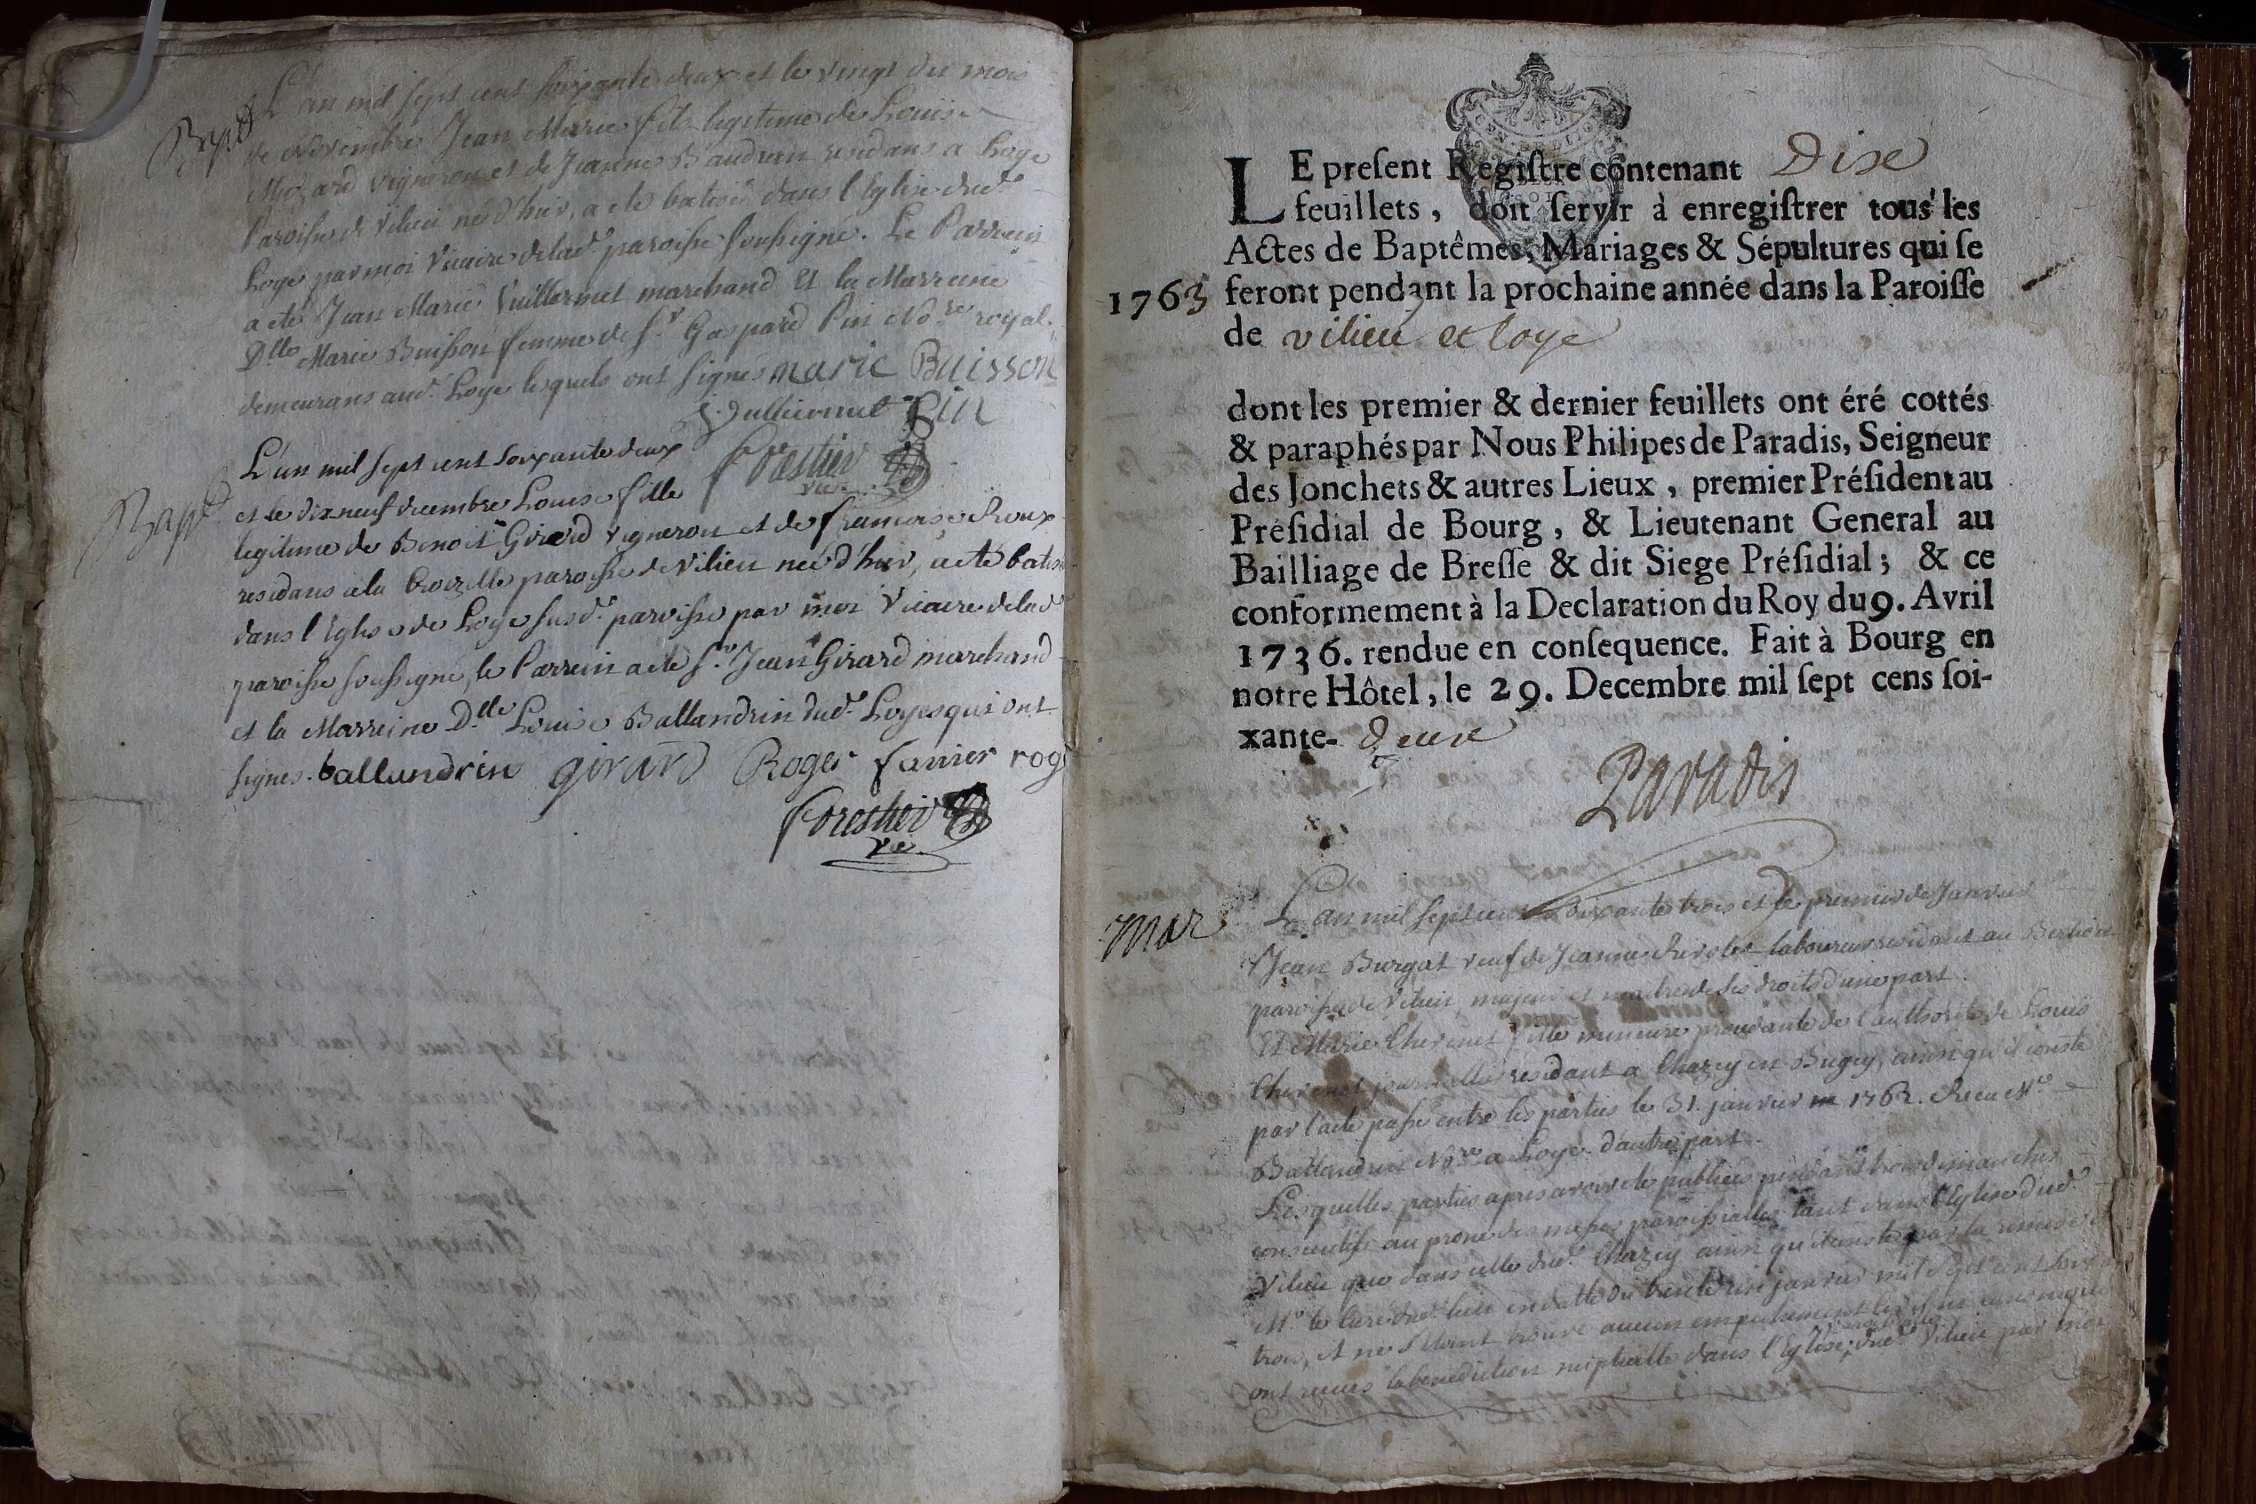 Bapt
L'an mil sept cent soixante deux et le vingt du mois
de Novembre Jean Marie fils legitime de Louis
Mozard vigneron et de Jeanne Baudran residans a Loye
Paroisse de Vilieu né d'hier, a eté batisé dans l'Eglise dud.
Loye par moi Vicaire de lad. paroisse soussigné. Le Parrein
a eté Jean Marie Vuillermet marchand Et la Marreine
Dlle Marie Buisson femme de Sr Gaspard Pin Nore royal
demeurans aud. Loye lesquels ont signés marie Buisson
j. vulliermet Pin
Forestier
vic.
Bapt
L'an mil sept cent soixante deux
et le dix neuf decembre Louise fille
legitime de Benoit Girard vigneron et de francoise Roux
residans a la paroisse de Vilieu née d'hier, a eté batisé
dans l'Eglise de Loye susd. paroisse par moi Vicaire de lad.
paroisse soussigné, le Parrein a eté Sr Jean Girard marchand
et la Marreine Dlle Louise Ballandrin dud. Loyes qui ont
signés. ballandrin girard Roger favier rog
Forestier
vic.
LE preſent Regiſtre contenant Dixe
feuillets, doit ſervir à enregiſtrer tous les
Actes de Baptêmes, Mariages & Sépultures qui ſe
1763 feront pendant la prochaine année dans la Paroiſſe
de vilieu et loye
dont les premier & dernier feuillets ont éré cottés
& paraphés par Nous Philipes de Paradis, Seigneur
des Jonchets & autres Lieux, premier Préſident au
Préſidial de Bourg, & Lieutenant General au
Bailliage de Breſſe & dit Siege Préſidial; & ce
conformement à la Declaration du Roy du 9. Avril
1736. rendue en conſequence. Fait à Bourg en
notre Hôtel, le 29. Decembre mil ſept cens ſoi-
xante- deuxe
Paradis
Mar
L'an mil sept cent soixante trois et le premier de Janvier
Jean Burgat veuf de Jeanne laboureur residant au
paroisse de Vilieu, majeur et maitre de ses droits d'une part.
Et Marie Chevenet fille mineure procedante de l'authorité de Louis
Chevenet journallier residant a Chazey en Bugey, ainsi qu'il conste
par l'acte passé entre les parties le 31. janvier 1763. Recu Me
Ballandrin Nore a Loye d'autre part.
Lesquelles parties apres avoir eté publiées pendant trois dimanches
consecutifs au prone des messes paroissialles tant dans l'Eglise dud.
Vilieu que dans celle dud. Chazey ainsi qu'il conste par la remise de
Mr le Curé dud. lieu en datte du trente un janvier mil sept cent soixante
trois, et ne s'etant trouvé aucun empechement
ont reçues la benediction nuptialle dans l'Eglise dud. Vilieu par moi